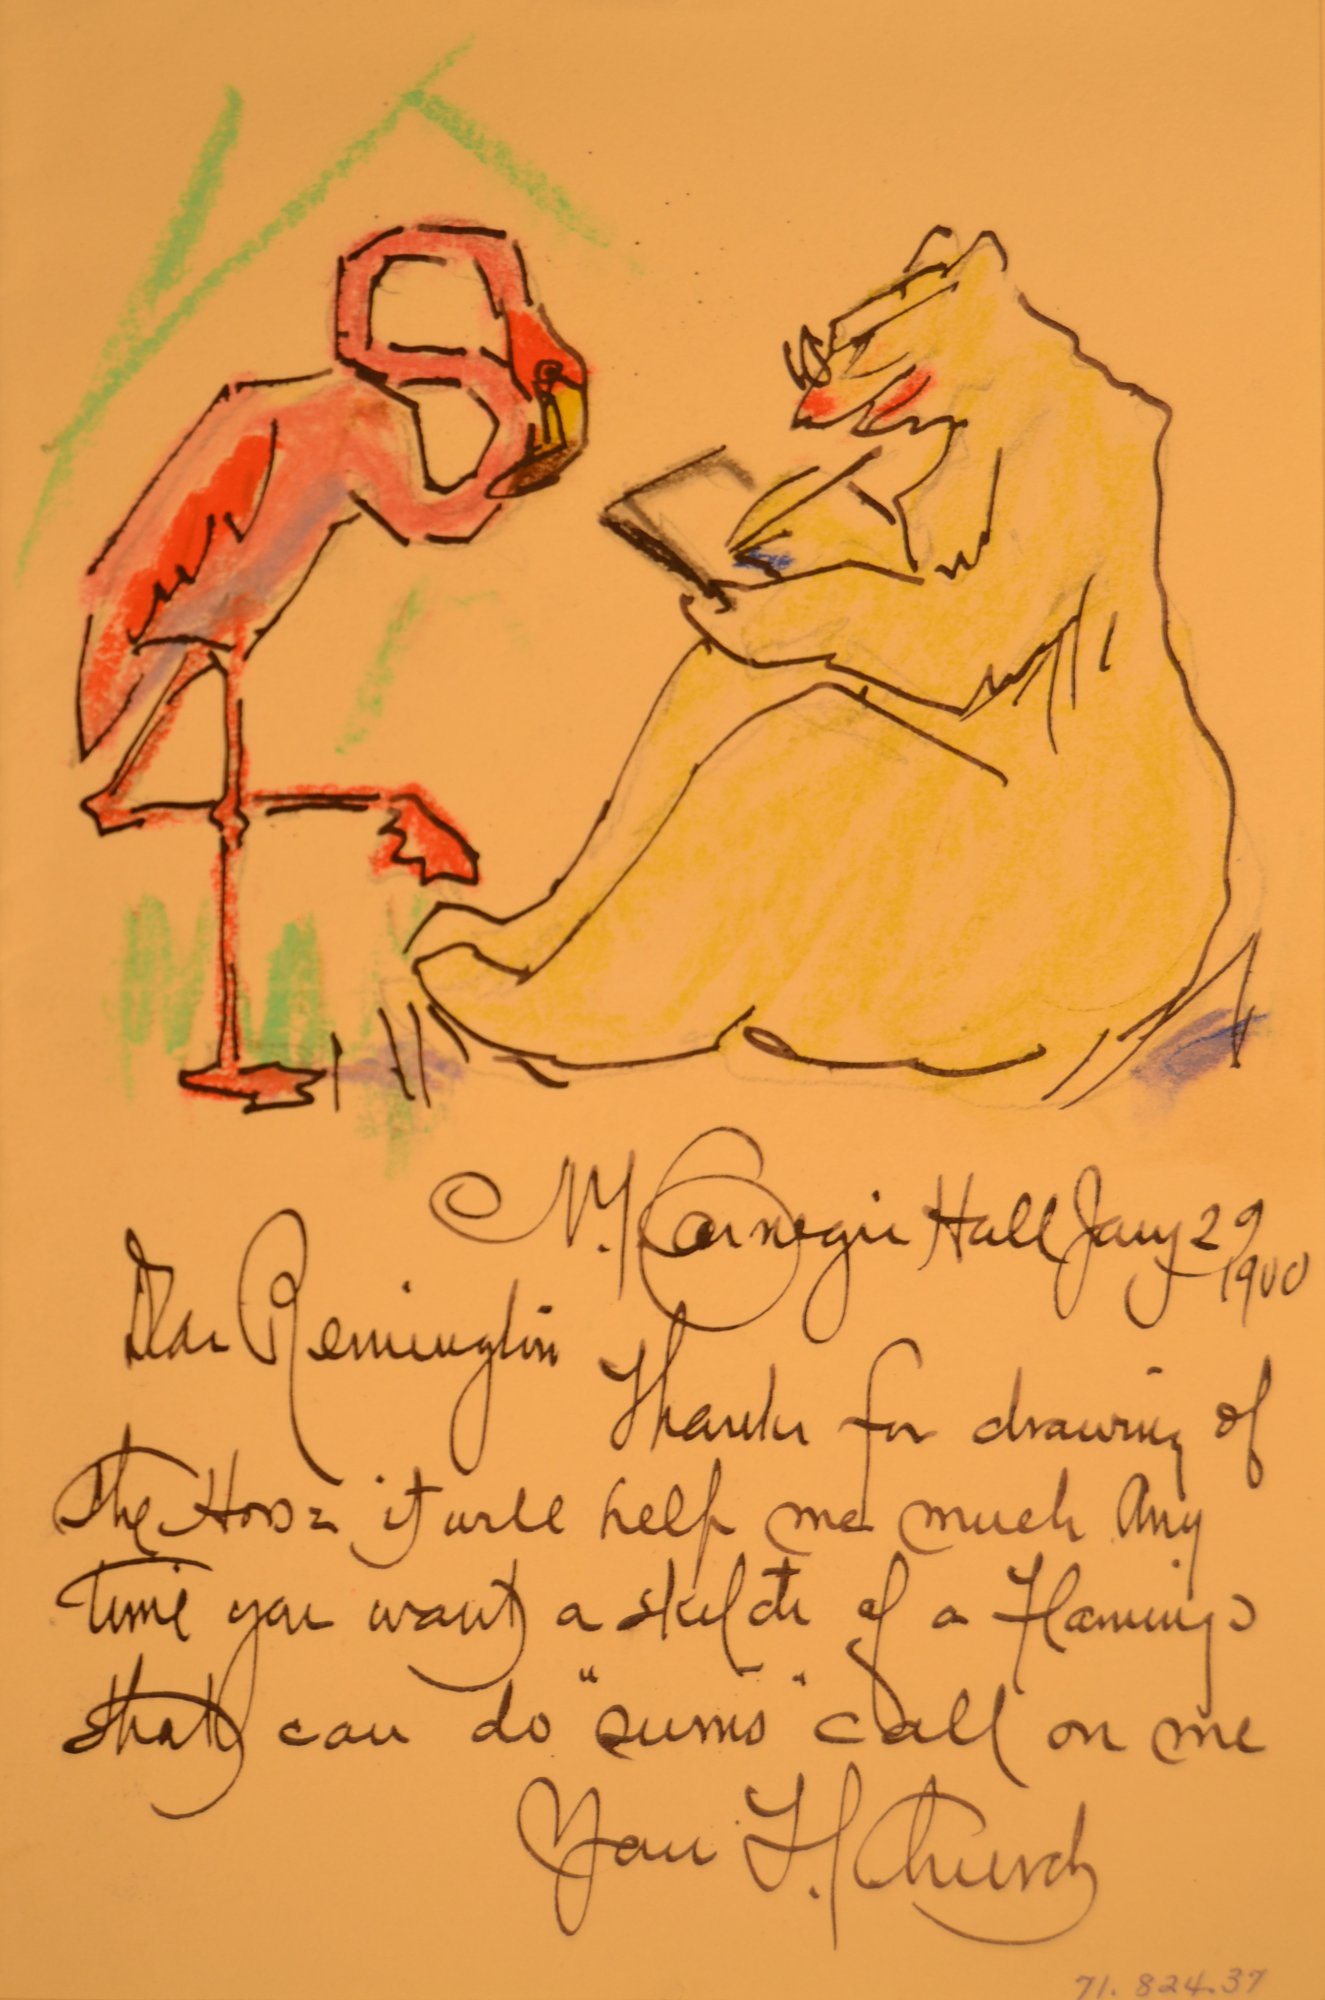 N.Y. Carnegie Hall Jany 29
1900
Dear Remington
Thanks for drawing of
the Horse it will help me much Any
time you want a sketch of a Flamingo
that can do "sums" call on me
Your F. S. Church
71.824.37